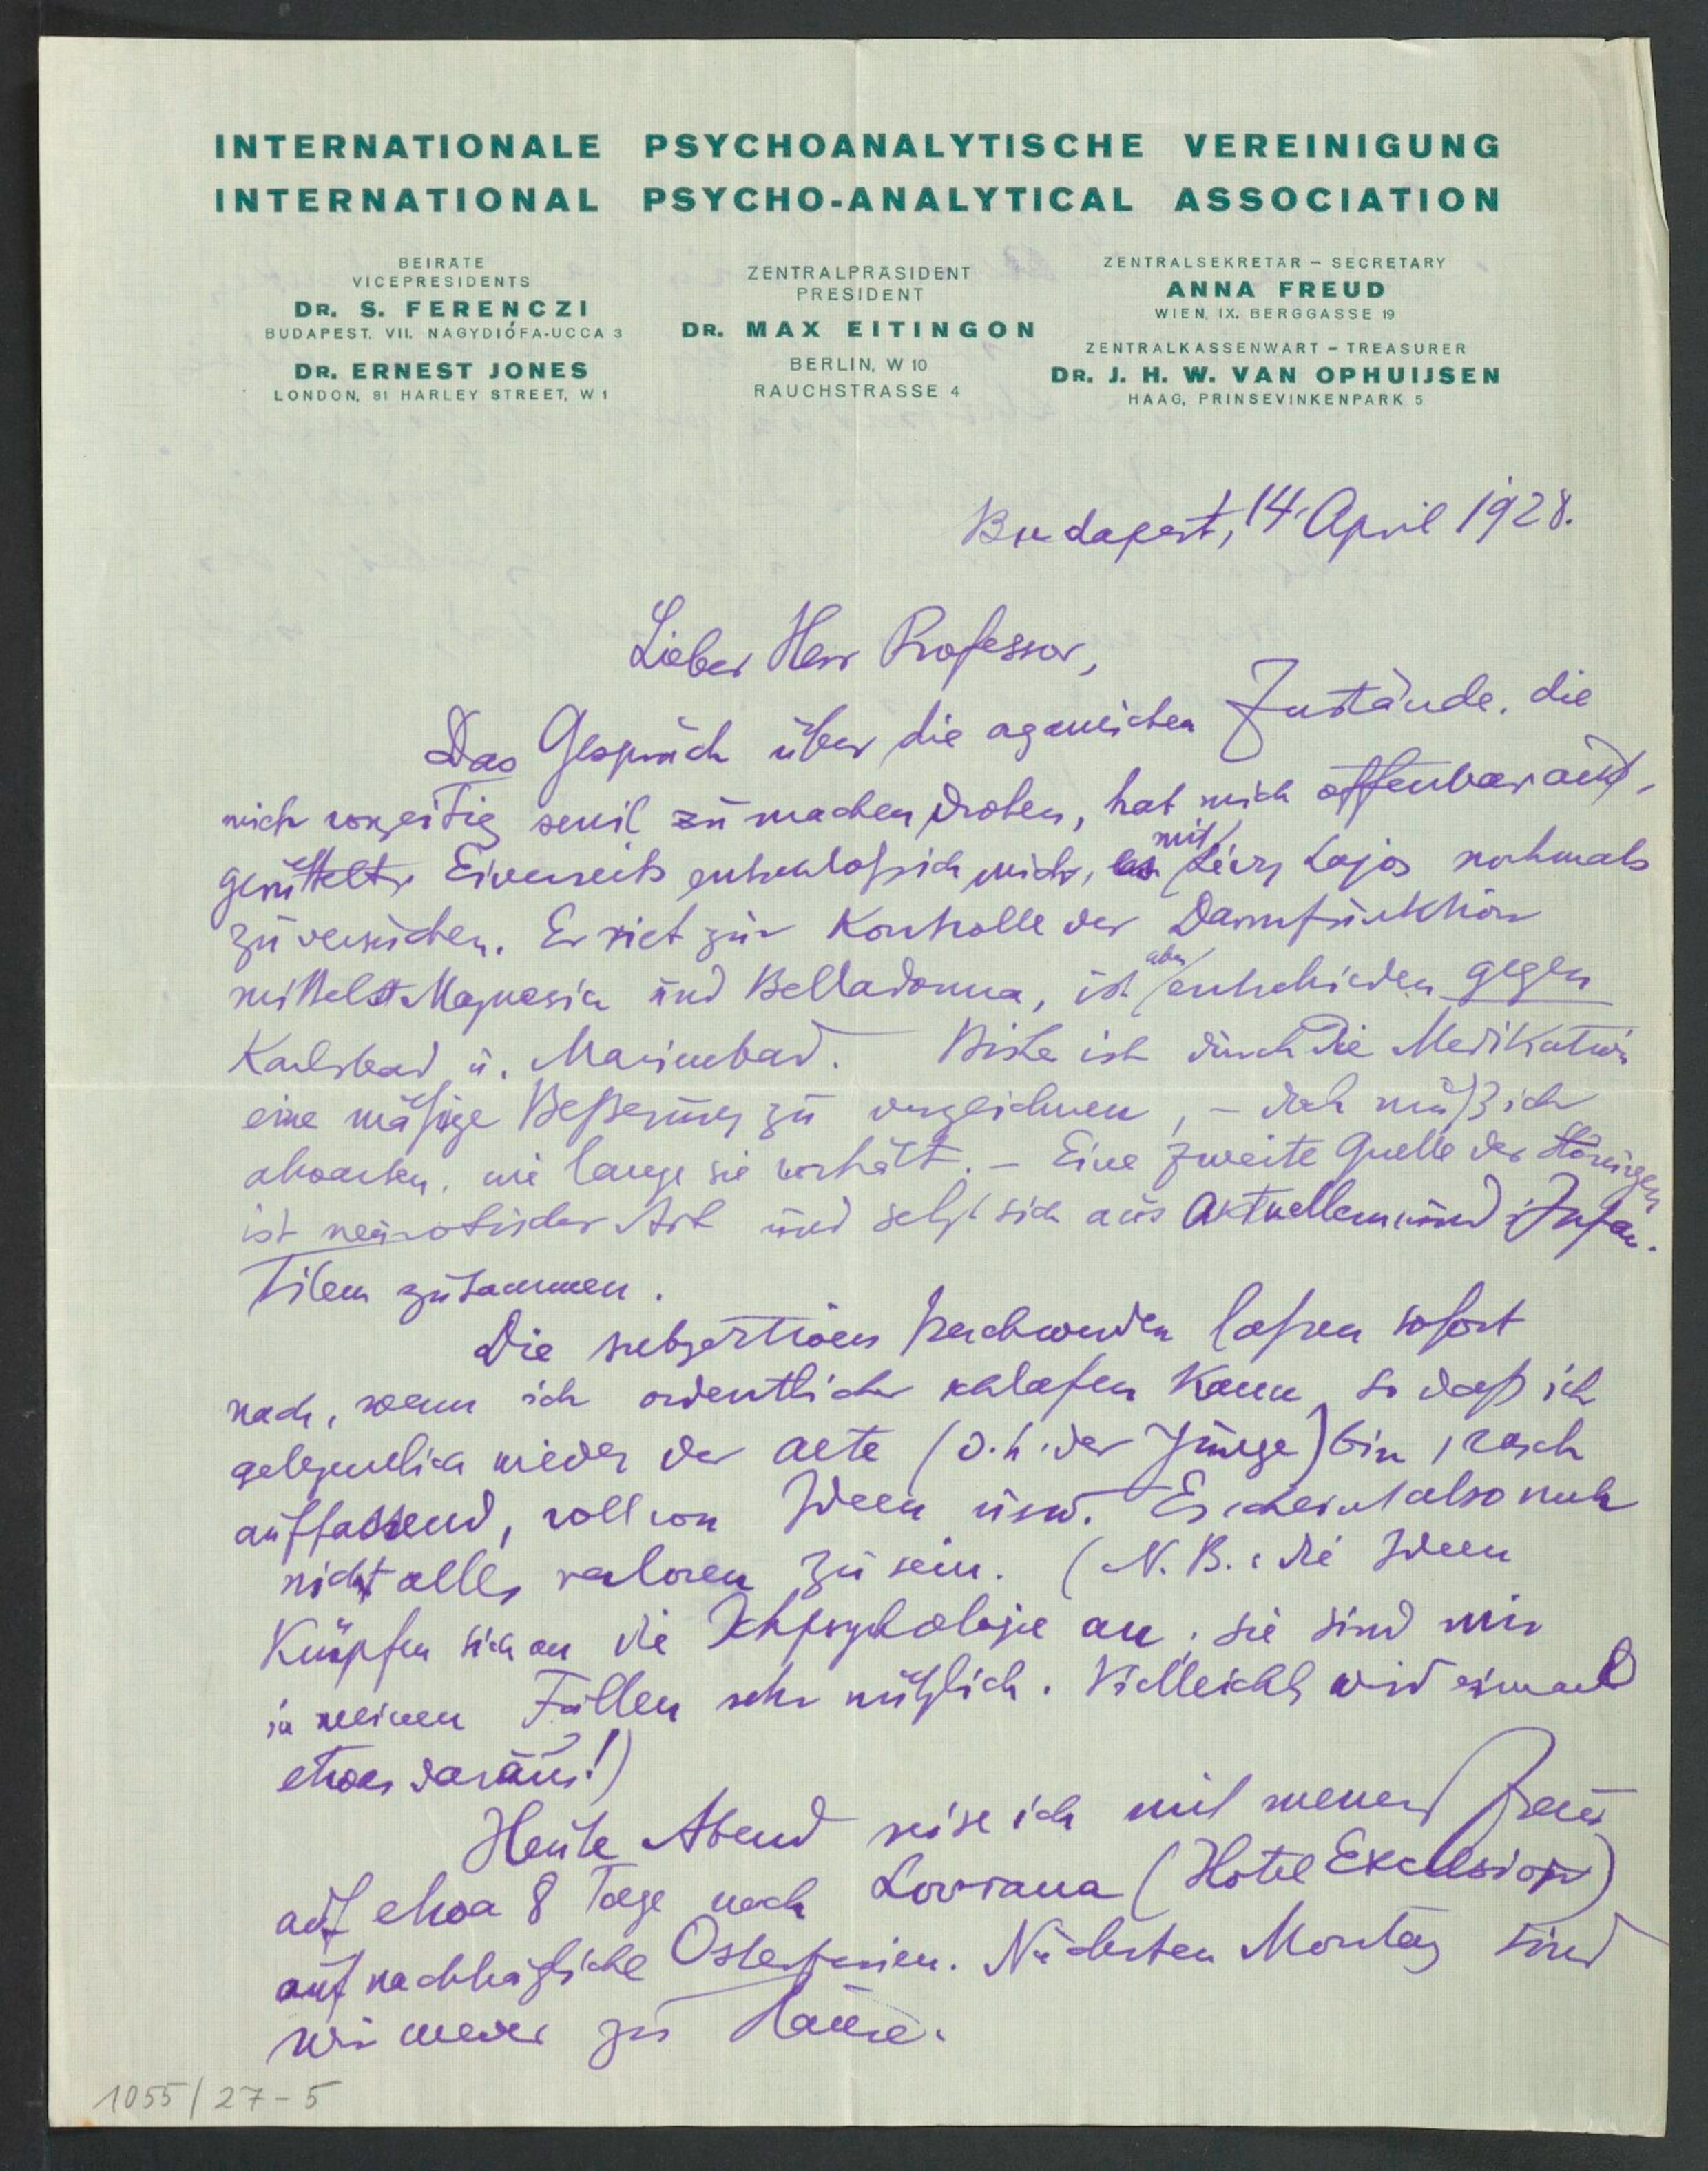 INTERNATIONALE PSYCHOANALYTISCHE VEREINIGUNG
INTERNATIONAL PSYCHO-ANALYTICAL ASSOCIATION
BEIRÄTE
VICEPRESIDENTS
DR. S. FERENCZI
BUDAPEST, VII. NAGYDIÓFA-UCCA 3
DR. ERNEST JONES
LONDON, 81 HARLEY STREET, W 1
ZENTRALPRÄSIDENT
PRESIDENT
DR. MAX EITINGON
BERLIN, W 10
RAUCHSTRASSE 4
ZENTRALSEKRETÄR – SECRETARY
ANNA FREUD
WIEN, IX. BERGGASSE 19
ZENTRALKASSENWART – TREASURER
DR. J. H. W. VAN OPHUIJSEN
HAAG, PRINSEVINKENPARK 5
Budapest, 14. April 1928.
Lieber Herr Professor,
Das Gespräch über die organischen Zustände, die
mich vorzeitig senil zu machen drohen, hat mich offenbar auf-
gerüttelt. Einerseits entschloß ich mich, es mit Lévy Lajos nochmals
zu versuchen. Er riet zur Kontrolle der Darmfunktion
mittelst Magnesia und Belladonna, ist aber entschieden gegen
Karlsbad u. Marienbad. Bisher ist durch die Medikation
eine mäßige Beßerung zu verzeichnen, – doch muß ich
abwarten, wie lange sie vorhält. – Eine zweite Quelle der Störungen
ist neurotischer Art und setzt sich aus Aktuellem und Infan-
tilem zusammen.
Die subjektiven Beschwerden laßen sofort
nach, wenn ich ordentlich schlafen kann, so daß ich
gelegentlich wieder der alte (d.h. der Junge) bin, rasch
auffassend, voll von Ideen usw. Es scheint also noch
nicht alles verloren zu sein. (N.B.: die Ideen
knüpfen sich an die Ichpsychologie an; sie sind mir
in meinen Fällen sehr nützlich. Vielleicht wird einmal
etwas daraus!)
Heute Abend reise ich mit meiner Frau
auf etwa 8 Tage nach Lovrana (Hotel Excelsior)
auf nachträgliche Osterferien. Nächsten Montag sind
wir wieder zu Hause.
1055/27-5